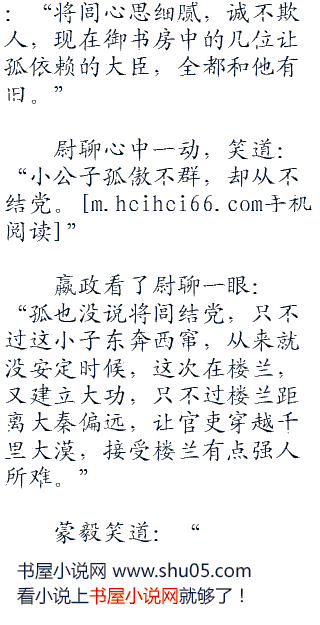 ：“将闾心思细腻，诚不欺
人，现在御书房中的几位让
孤依赖的大臣，全都和他有
旧。”
尉聊心中一动，笑道：
“小公子孤傲不群，却从不
结党。[m.hcihci66.com手机
阅读]”
嬴政看了尉聊一眼：
“孤也没说将闾结党，只不
过这小子东奔西窜，从来就
没安定时候，这次在楼兰，
又建立大功，只不过楼兰距
离大秦偏远，让官吏穿越千
里大漠，接受楼兰有点强人
所难。”
蒙毅笑道：“
书屋小说网 www.shu05.com
看小说上书屋小说网就够了！